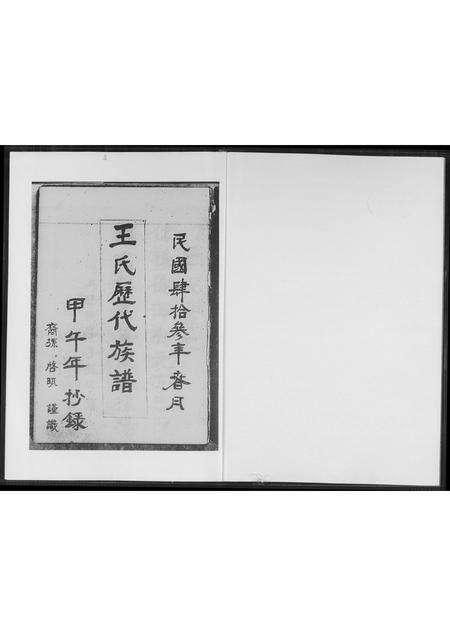 民國肆拾參年春月
王氏歷代族譜
甲午年抄錄
裔孫 啓明 謹識